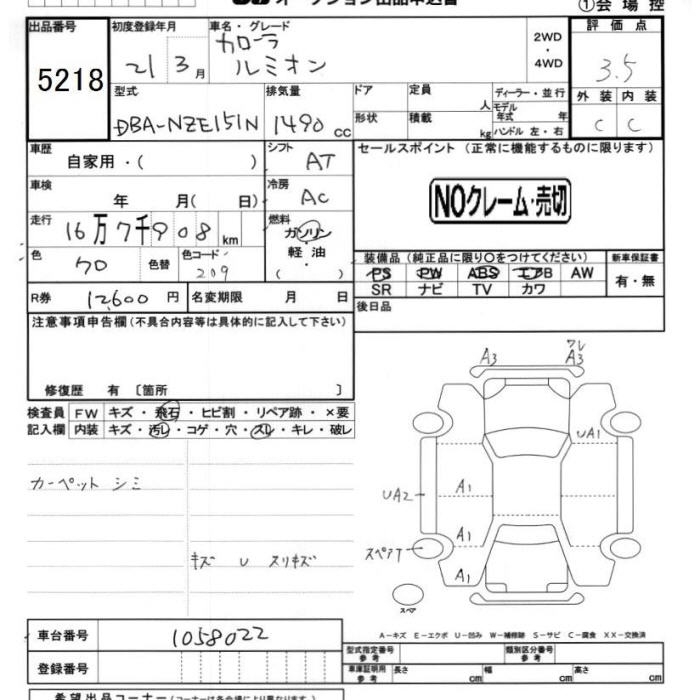 オークション出品申込書
①会場控
出品番号 5218
初度登録年月 21 3月
車名・グレード カローラ ルミオン
2WD・4WD
評価点 3.5
外装 内装
C C
型式 DBA-NZE151N
排気量 1490 cc
ドア
形状
定員 人
積載 kg
ディーラー・並行
モデル年式 年
ハンドル 左・右
車歴 自家用・( )
シフト AT
セールスポイント (正常に機能するものに限ります)
NOクレーム・売切
車検 年 月( 日)
冷房 AC
走行 16万7千908 km
燃料 ガソリン 軽油 ( )
色 クロ 色替 色コード 209
装備品 (純正品に限り○をつけてください)
新車保証書
PS PW ABS エアB AW
SR ナビ TV カワ
有・無
R券 12,600 円
名変期限 月 日
後日品
注意事項申告欄 (不具合内容等は具体的に記入して下さい)
修復歴 有 〔箇所 〕
検査員記入欄
FW キズ・飛石・ヒビ割・リペア跡・×要
内装 キズ・汚レ・コゲ・穴・スレ・キレ・破レ
カーペット シミ
キズ U スリキズ
A3
ワレ
A3
UA1
UA2
A1
A1
スペアT
A1
スペア
A-キズ E-エクボ U-凹み W-補修跡 S-サビ C-腐食 XX-交換済
車台番号 1058022
登録番号
型式指定番号 参考
類別区分番号 参考
車庫証明用 参考 長さ cm 幅 cm 高さ cm
希望出品コーナー (コーナーは各会場により異なります)